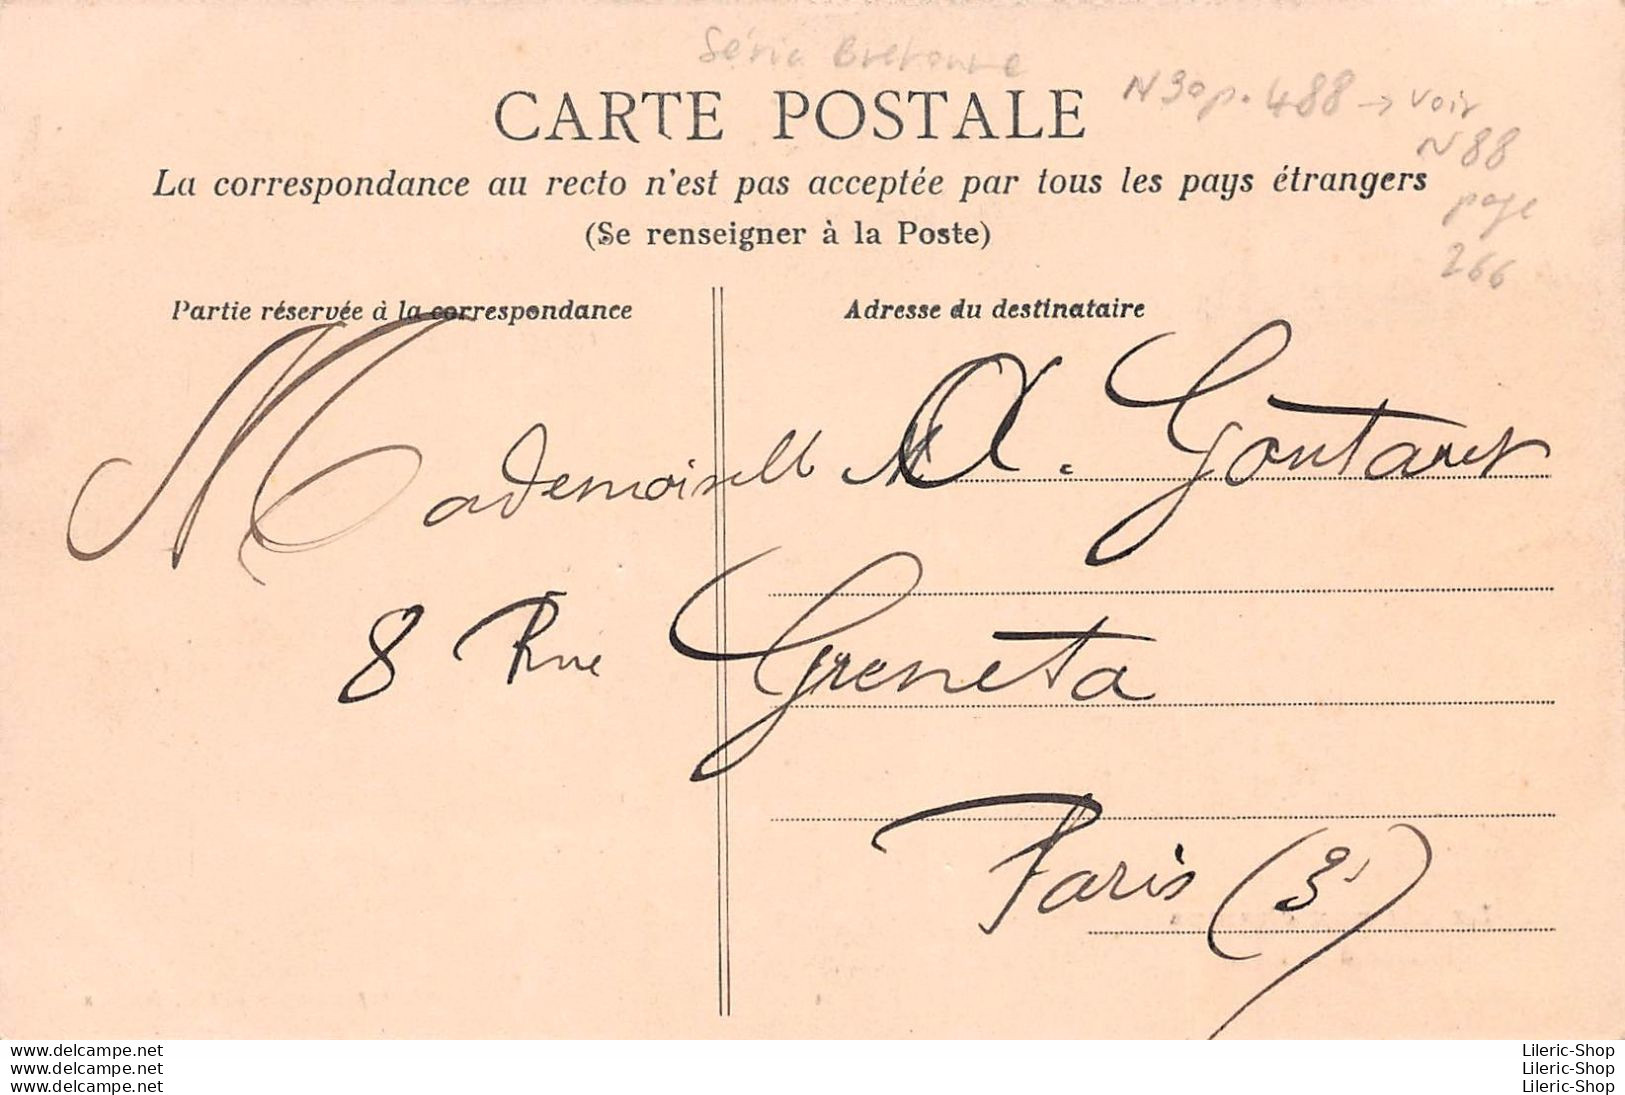 Série Bretonne
CARTE POSTALE
N 30 p. 488 → voir
N 88
page
266
La correspondance au recto n'est pas acceptée par tous les pays étrangers
(Se renseigner à la Poste)
Partie réservée à la correspondance
Adresse du destinataire
Mademoiselle A. Goutaret
8 Rue Greneta
Paris (3e)
www.delcampe.net
www.delcampe.net
www.delcampe.net
Lileric-Shop
Lileric-Shop
Lileric-Shop